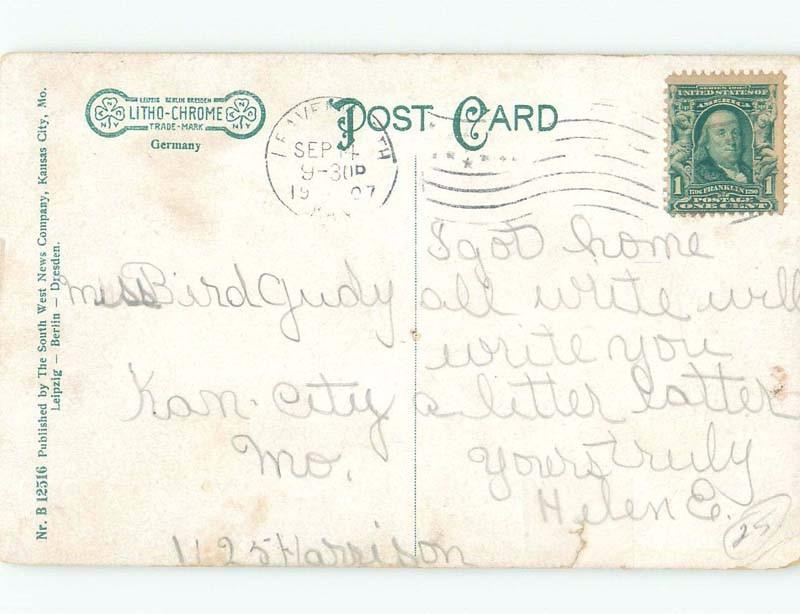 LEIPZIG BERLIN DRESDEN
LITHO-CHROME
TRADE-MARK
Germany
POST CARD
LEAVENWORTH
SEP 14
9-30P
19 07
KAN
SERIES 1902
UNITED STATES OF
AMERICA
1 1706 FRANKLIN 1790 1
POSTAGE
ONE CENT
Nr. B 12516 Published by The South West News Company, Kansas City, Mo.
Leipzig – Berlin – Dresden.
Miss Bird Gudy
Kan. City
Mo.
1125 Harrison
I got home
all write will
write you
a litter latter
Yours truly
Helen E.
25